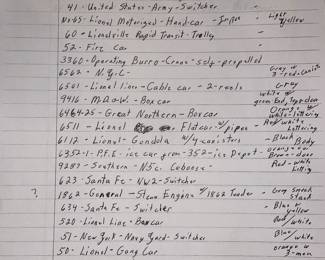 41 - United States - Army - Switcher
No-65 - Lionel Motorized - Handcar - Light Yellow
60 - Lionelville Rapid Transit - Trolly
52 - Fire Car
3360 - Operating Burro - Crane - self-propelled
6562 - N.Y.C - Gray w/ 3-red-canists
6501 - Lionel Lines - Cable car - 2-reels Gray
9416 - M.D.&W. - Boxcar white w/ green
6464-25 - Great Northern - Boxcar - Orange w/ white-lettering
6511 - Lionel Flatcar w/ pipes - Red/white lettering
6112 - Lionel - Gondola w/4 canisters - Black Body
6352-1 - P.F.E. ice car from - 352 - ice Depot - Orange w/ Brown-door
9287 - Southern - N5c. Caboose - Red - with Lettering
623 - Santa Fe - NW2 - Switcher
? 1862 - General - Steam Engine w/ 1862 Tender - Gray Smoke Stack
634 - Santa Fe - Switcher - Blue w/ yellow
520 - Lionel Line - Boxcar Red/white
51 - New York - Navy Yard - Switch Blue/white
50 - Lionel - Gang Car orange w/ 3-men